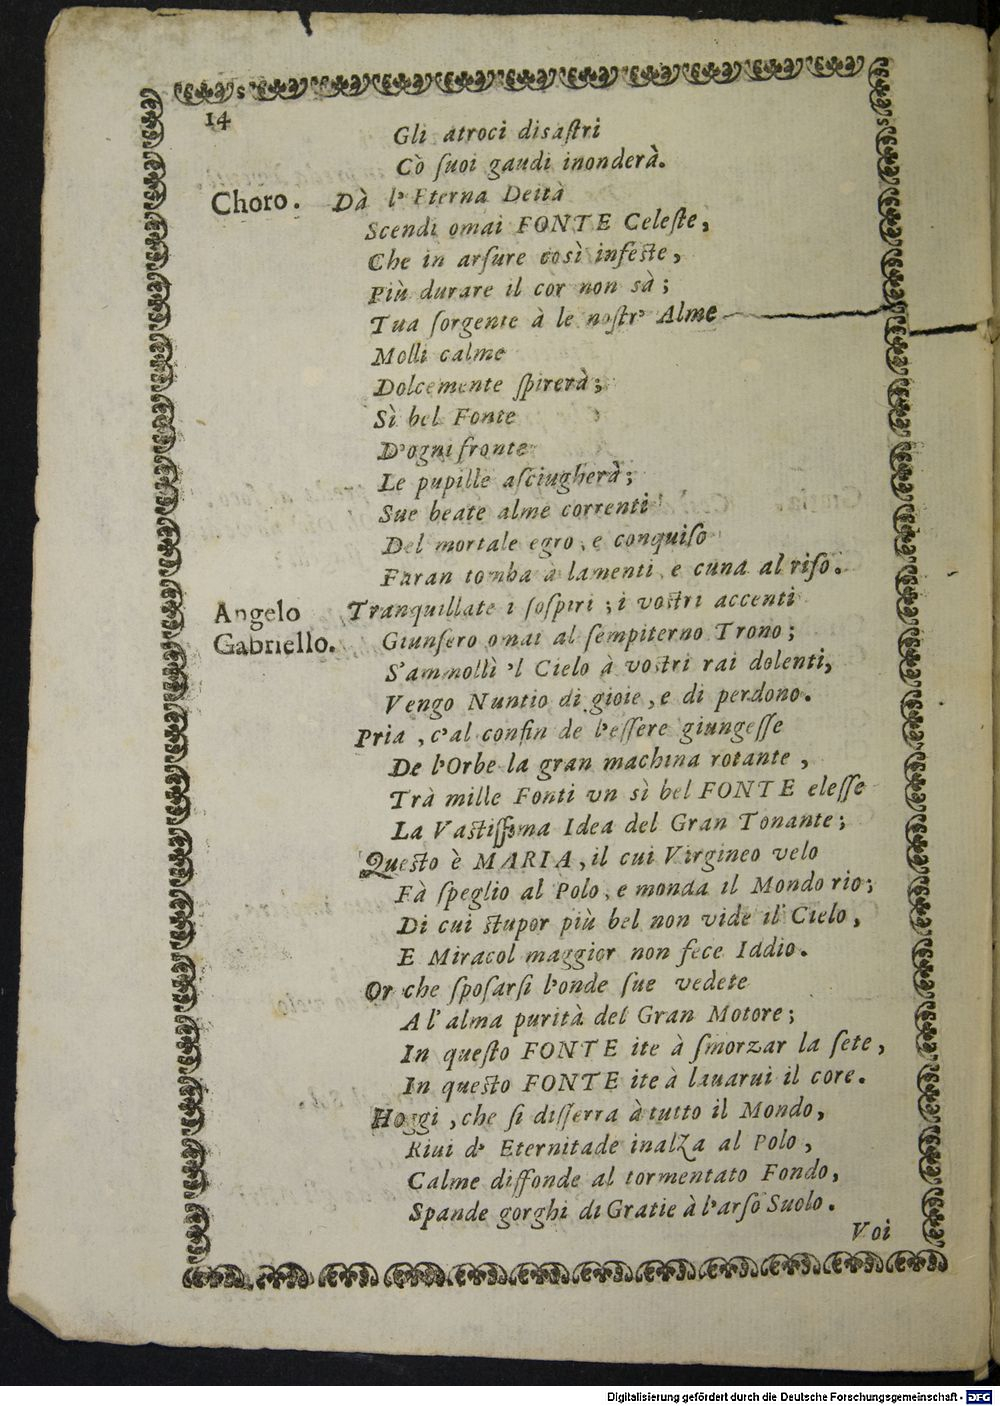 14
Gli atroci disaſtri
Cò ſuoi gaudi inonderà.
Choro. Dà l'Eterna Deità
Scendi omai FONTE Celeſte,
Che in arſure così infeſte,
Più durare il cor non sà;
Tua ſorgente à le noſtr' Alme
Molli calme
Dolcemente ſpirerà;
Sì bel Fonte
D'ogni fronte
Le pupille aſciugherà;
Sue beate alme correnti
Del mortale egro, e conquiſo
Faran tomba à lamenti, e cuna al riſo.
Angelo Tranquillate i ſoſpiri; i voſtri accenti
Gabriello. Giunſero omai al ſempiterno Trono;
S'ammollì 'l Cielo à voſtri rai dolenti,
Vengo Nuntio di gioie, e di perdono.
Pria, c'al confin de l'eſſere giungeſſe
De l'Orbe la gran machina rotante,
Trà mille Fonti vn sì bel FONTE eleſſe
La Vaſtiſſima Idea del Gran Tonante;
Queſto è MARIA, il cui Virgineo velo
Fà ſpeglio al Polo, e monda il Mondo rio;
Di cui ſtupor più bel non vide il Cielo,
E Miracol maggior non fece Iddio.
Or che ſpoſarſi l'onde ſue vedete
A l'alma purità del Gran Motore;
In queſto FONTE ite à ſmorzar la ſete,
In queſto FONTE ite à lauarui il core.
Hoggi, che ſi diſſerra à tutto il Mondo,
Riui d' Eternitade inalza al Polo,
Calme diffonde al tormentato Fondo,
Spande gorghi di Gratie à l'arſo Suolo.
Voi
Digitalisierung gefördert durch die Deutsche Forschungsgemeinschaft - DFG